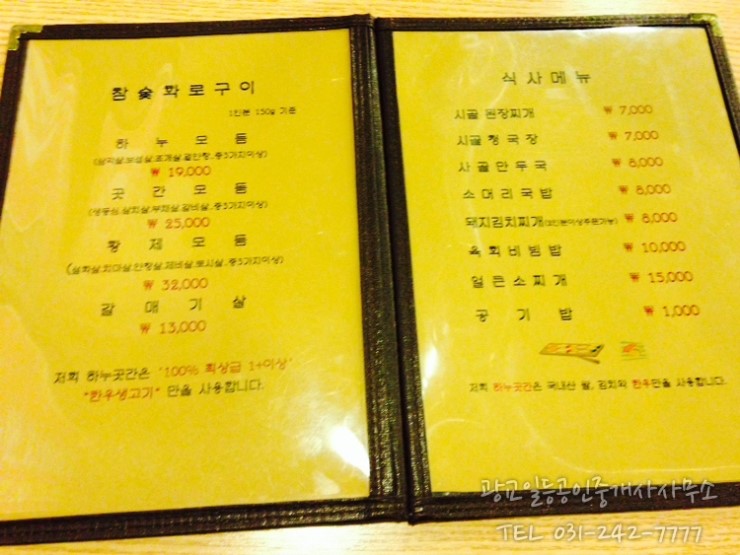 참 숯 화 로 구 이
1인분 150g 기준
하 누 모 듬
₩ 19,000
곳 간 모 듬
(생등심,살치살,부채살,갈비살,중3가지이상)
₩ 25,000
황 제 모 듬
₩ 32,000
갈 매 기 살
₩ 13,000
저희 하누곳간은 '100% 최상급 1+이상'
"한우생고기" 만을 사용합니다.
식 사 메 뉴
시골 된장찌개 ₩ 7,000
시골 청 국 장 ₩ 7,000
사 골 만 두 국 ₩ 8,000
소 머 리 국 밥 ₩ 8,000
돼지김치찌개(2인분이상주문가능) ₩ 8,000
육 회 비 빔 밥 ₩ 10,000
얼 큰 소 찌 개 ₩ 15,000
공 기 밥 ₩ 1,000
저희 하누곳간은 국내산 쌀, 김치와 한우만을 사용합니다.
광교일등공인중개사사무소
TEL 031-242-7777